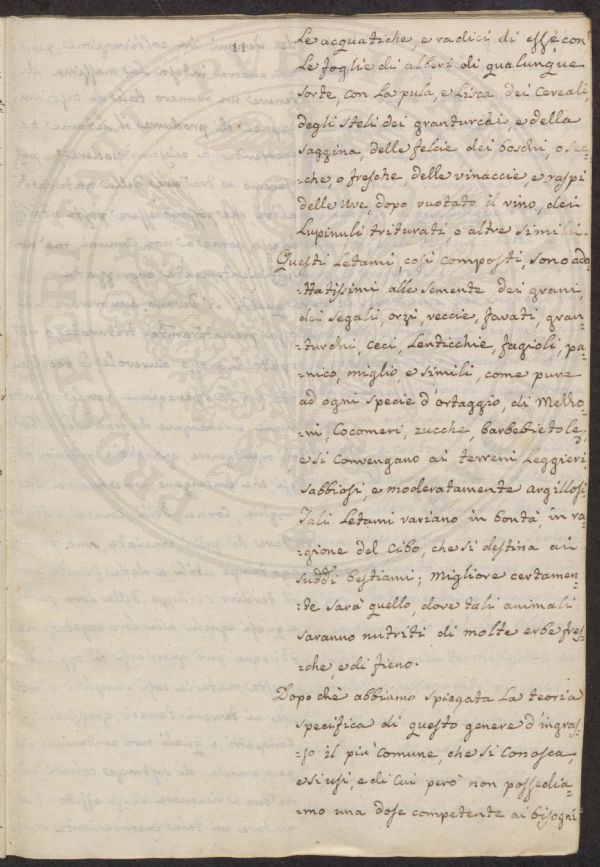 11
le acquatiche, e radici di esse, con
le foglie di alberi di qualunque
sorte, con la pula, e lisca dei cereali,
degli steli dei granturchi, e della
saggina, delle felcie dei boschi, o sec-
-che, o fresche, delle vinaccie, e raspi
delle Uve, dopo vuotato il vino, dei
Lupinuli triturati, o altre simili.
Questi Letami, così composti, sono ada-
-ttatissimi alle semente dei grani,
dei segali, orzi, veccie, favati, gran-
-turchi, ceci, Lenticchie, fagioli, pa-
-nico, miglio, e simili, come pure
ad ogni specie d'ortaggio, di Mello-
-ni, Cocomeri, zucche, barbebietole,
e si convengano ai terreni Leggieri,
sabbiosi, e moderatamente argillosi.
Tali Letami variano in bontà, in ra-
-gione del Cibo, che si destina ai
sudd.i bestiami; migliore certamen-
-te sarà quello, dove tali animali
saranno nutriti di molte erbe fres-
-che, e di fieno.
Dopo chè abbiamo spiegata la teoria
specifica di questo genere d'ingras-
-so il più comune, che si conosca,
e si usi, e di cui però non possedia-
-mo una dose competente ai bisogni